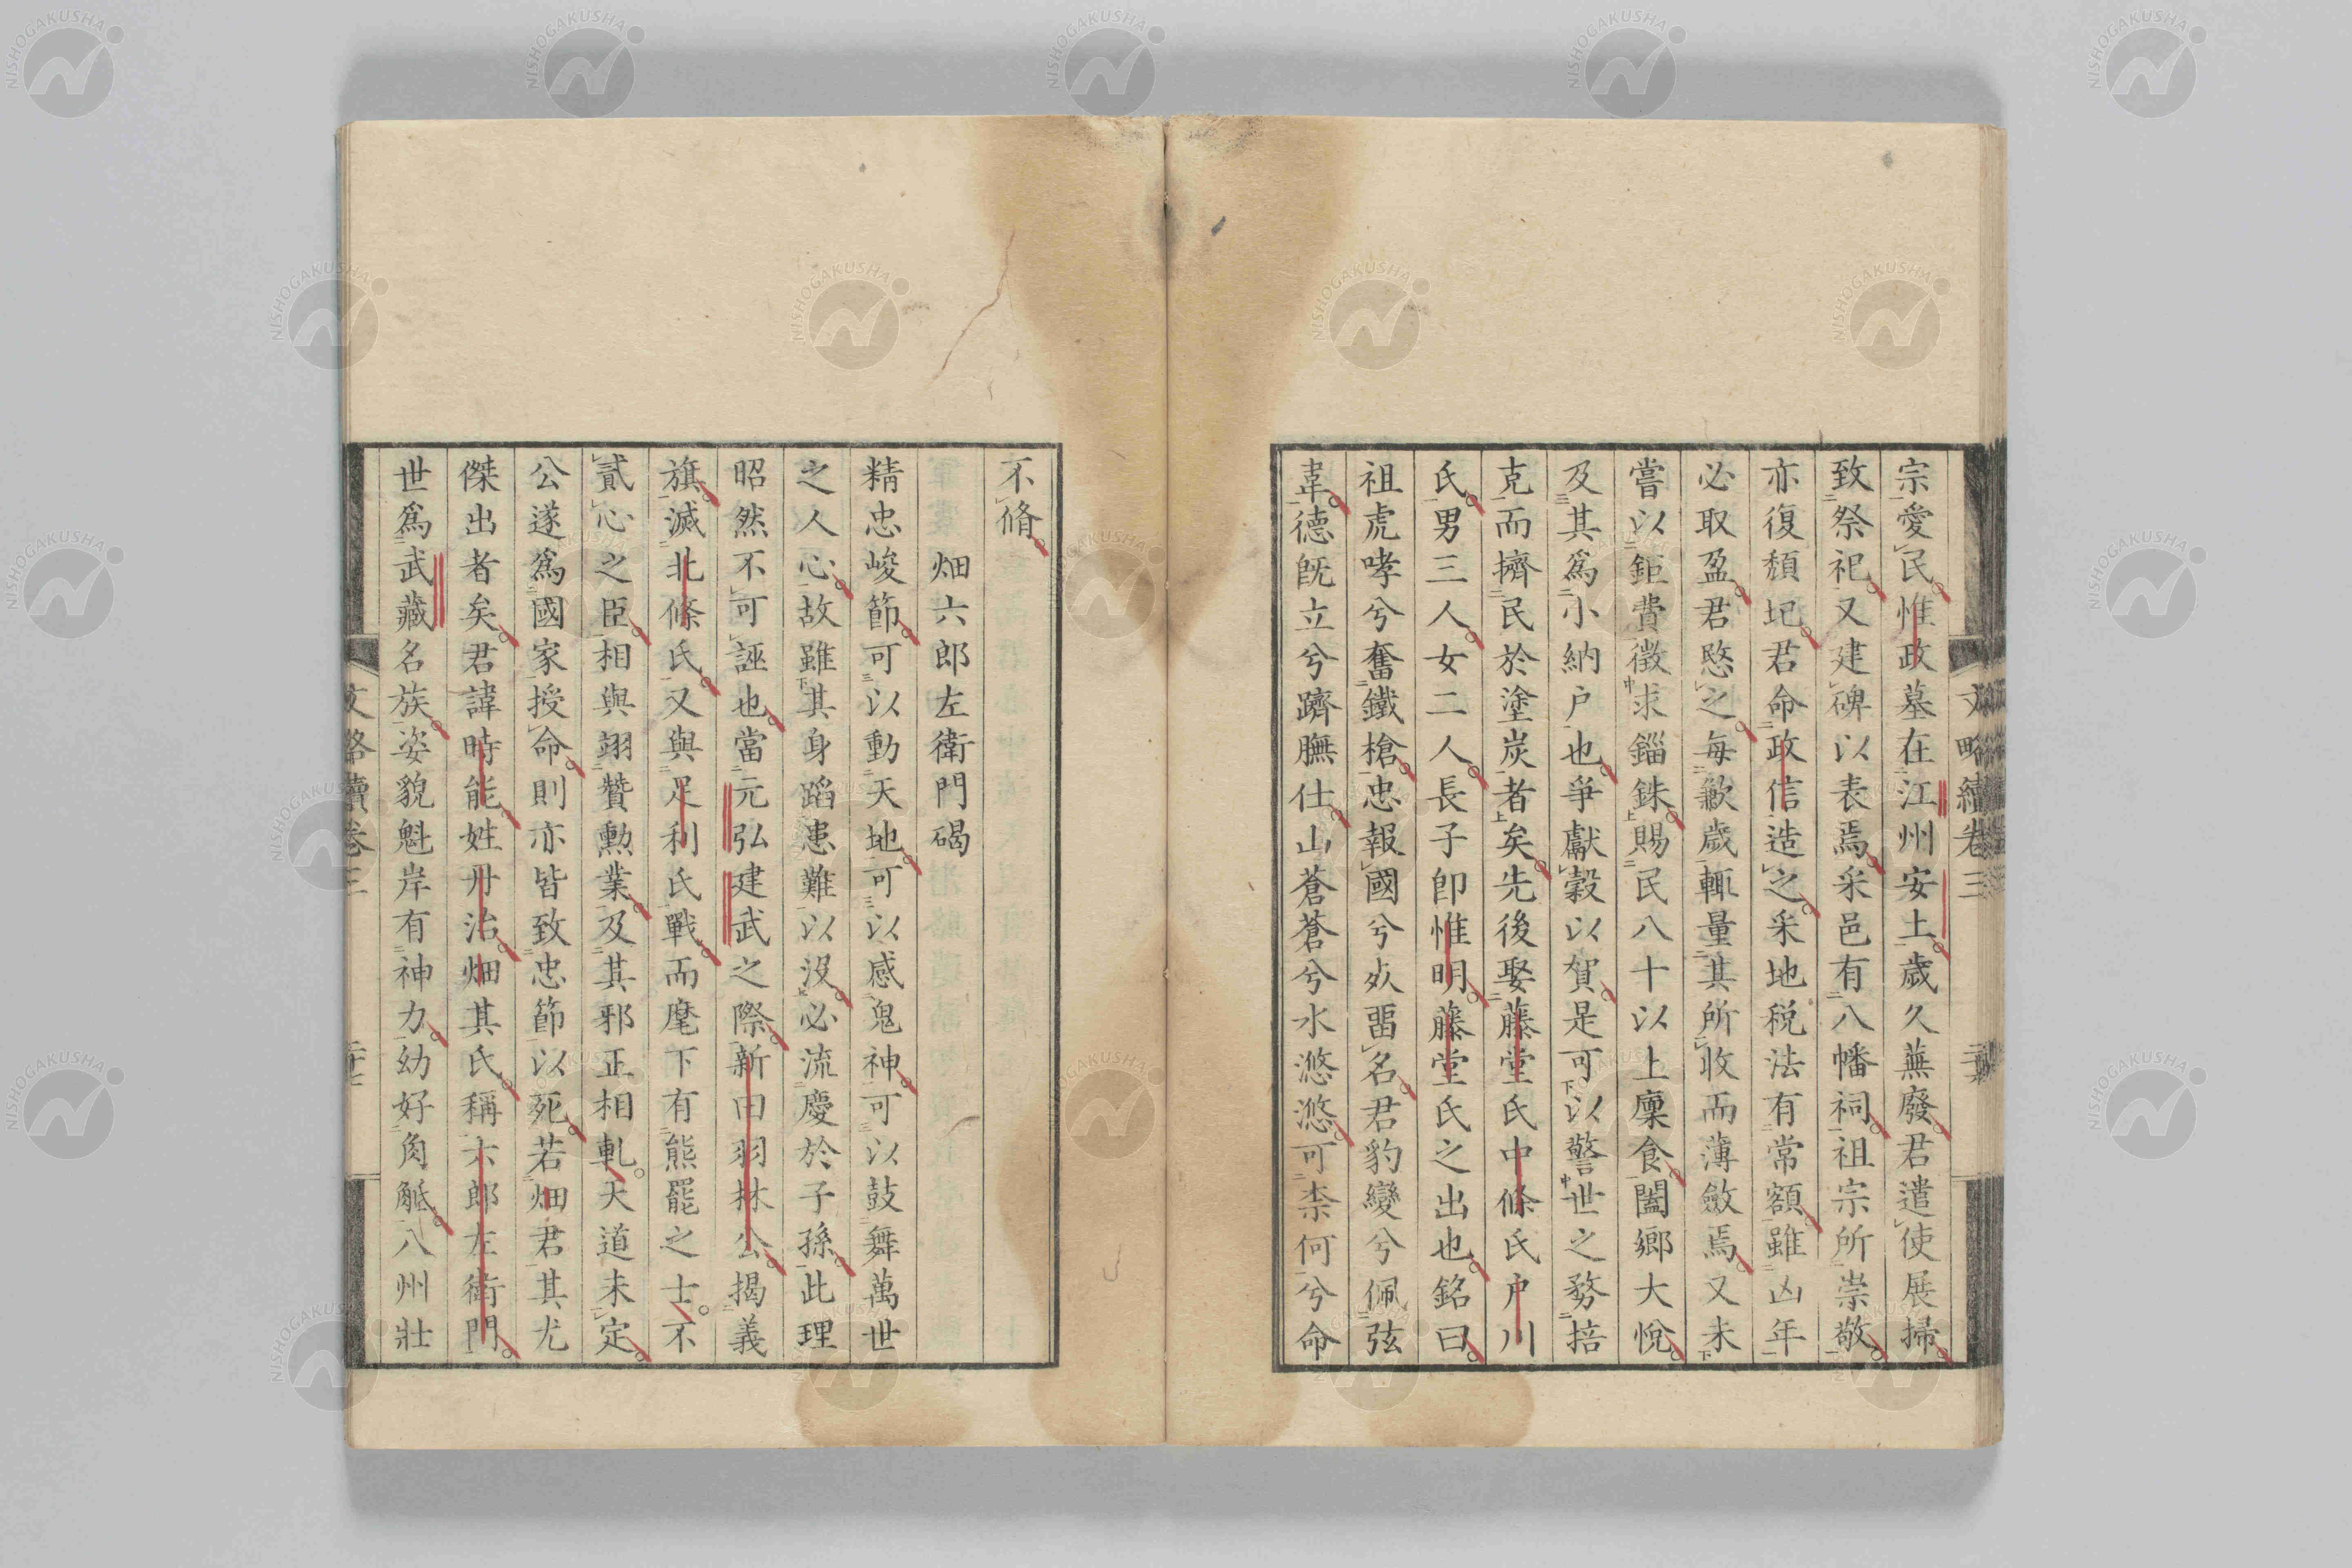 宗愛民惟政墓在江州安土歲久蕪廢君遣使展掃
致祭祀又建碑以表焉采邑有八幡祠祖宗所崇敬
亦復頹圮君命政信造之采地税法有常額雖凶年
必取盈君愍之每歉歲輒量其所收而薄斂焉又未
嘗以鉅費徴求錙銖賜民八十以上廩食闔鄉大悅
及其爲小納戶也爭獻穀以賀是可以警世之務掊
克而擠民於塗炭者矣先後娶藤堂氏中條氏戶川
氏男三人女二人長子卽惟明藤堂氏之出也銘曰
祖虎哮兮奮鐵槍忠報國兮死畱名君豹變兮佩弦
韋德旣立兮躋膴仕山蒼蒼兮水滺滺可柰何兮命
文略續卷三
不脩
畑六郎左衛門碣
精忠峻節可以動天地可以感鬼神可以鼓舞萬世
之人心故雖其身蹈患難以沒必流慶於子孫此理
昭然不可誣也當元弘建武之際新田羽林公揭義
旗滅北條氏又與足利氏戰而麾下有熊羆之士不
貳心之臣相與翊贊勲業及其邪正相軋天道未定
公遂爲國家授命則亦皆致忠節以死若畑君其尤
傑出者矣君諱時能姓丹治畑其氏稱六郎左衛門
世爲武藏名族姿貌魁岸有神力幼好角觝八州壯
文略續卷三
NISHOGAKUSHA